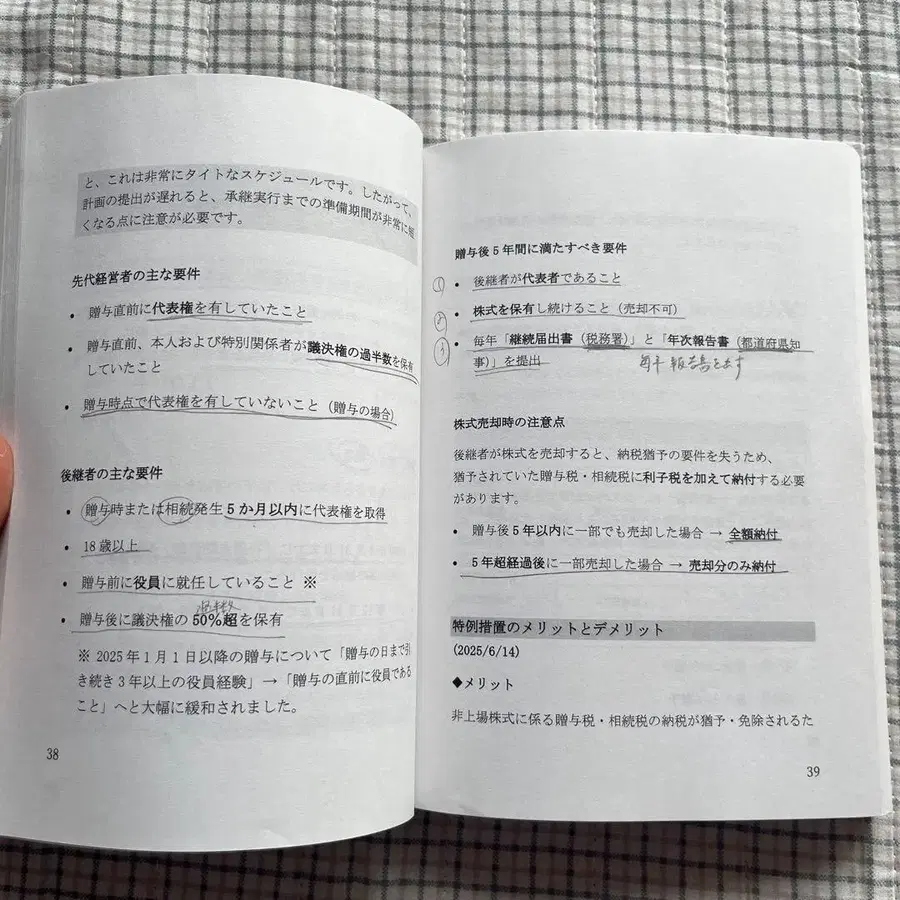 と、これは非常にタイトなスケジュールです。したがって、
計画の提出が遅れると、承継実行までの準備期間が非常に短
くなる点に注意が必要です。
先代経営者の主な要件
・ 贈与直前に代表権を有していたこと
・ 贈与直前、本人および特別関係者が議決権の過半数を保有
していたこと
・ 贈与時点で代表権を有していないこと（贈与の場合）
後継者の主な要件
・ 贈与時または相続発生5か月以内に代表権を取得
・ 18歳以上
・ 贈与前に役員に就任していること ※
過半数
・ 贈与後に議決権の50%超を保有
※ 2025年1月1日以降の贈与について「贈与の日まで引
き続き3年以上の役員経験」→「贈与の直前に役員である
こと」へと大幅に緩和されました。
38
贈与後5年間に満たすべき要件
① ・ 後継者が代表者であること
② ・ 株式を保有し続けること（売却不可）
③ ・ 毎年「継続届出書（税務署）」と「年次報告書（都道府県知
事）」を提出
毎年報告書を出す
株式売却時の注意点
後継者が株式を売却すると、納税猶予の要件を失うため、
猶予されていた贈与税・相続税に利子税を加えて納付する必要
があります。
・ 贈与後5年以内に一部でも売却した場合 → 全額納付
・ 5年超経過後に一部売却した場合 → 売却分のみ納付
特例措置のメリットとデメリット
(2025/6/14)
◆メリット
非上場株式に係る贈与税・相続税の納税が猶予・免除されるた
39